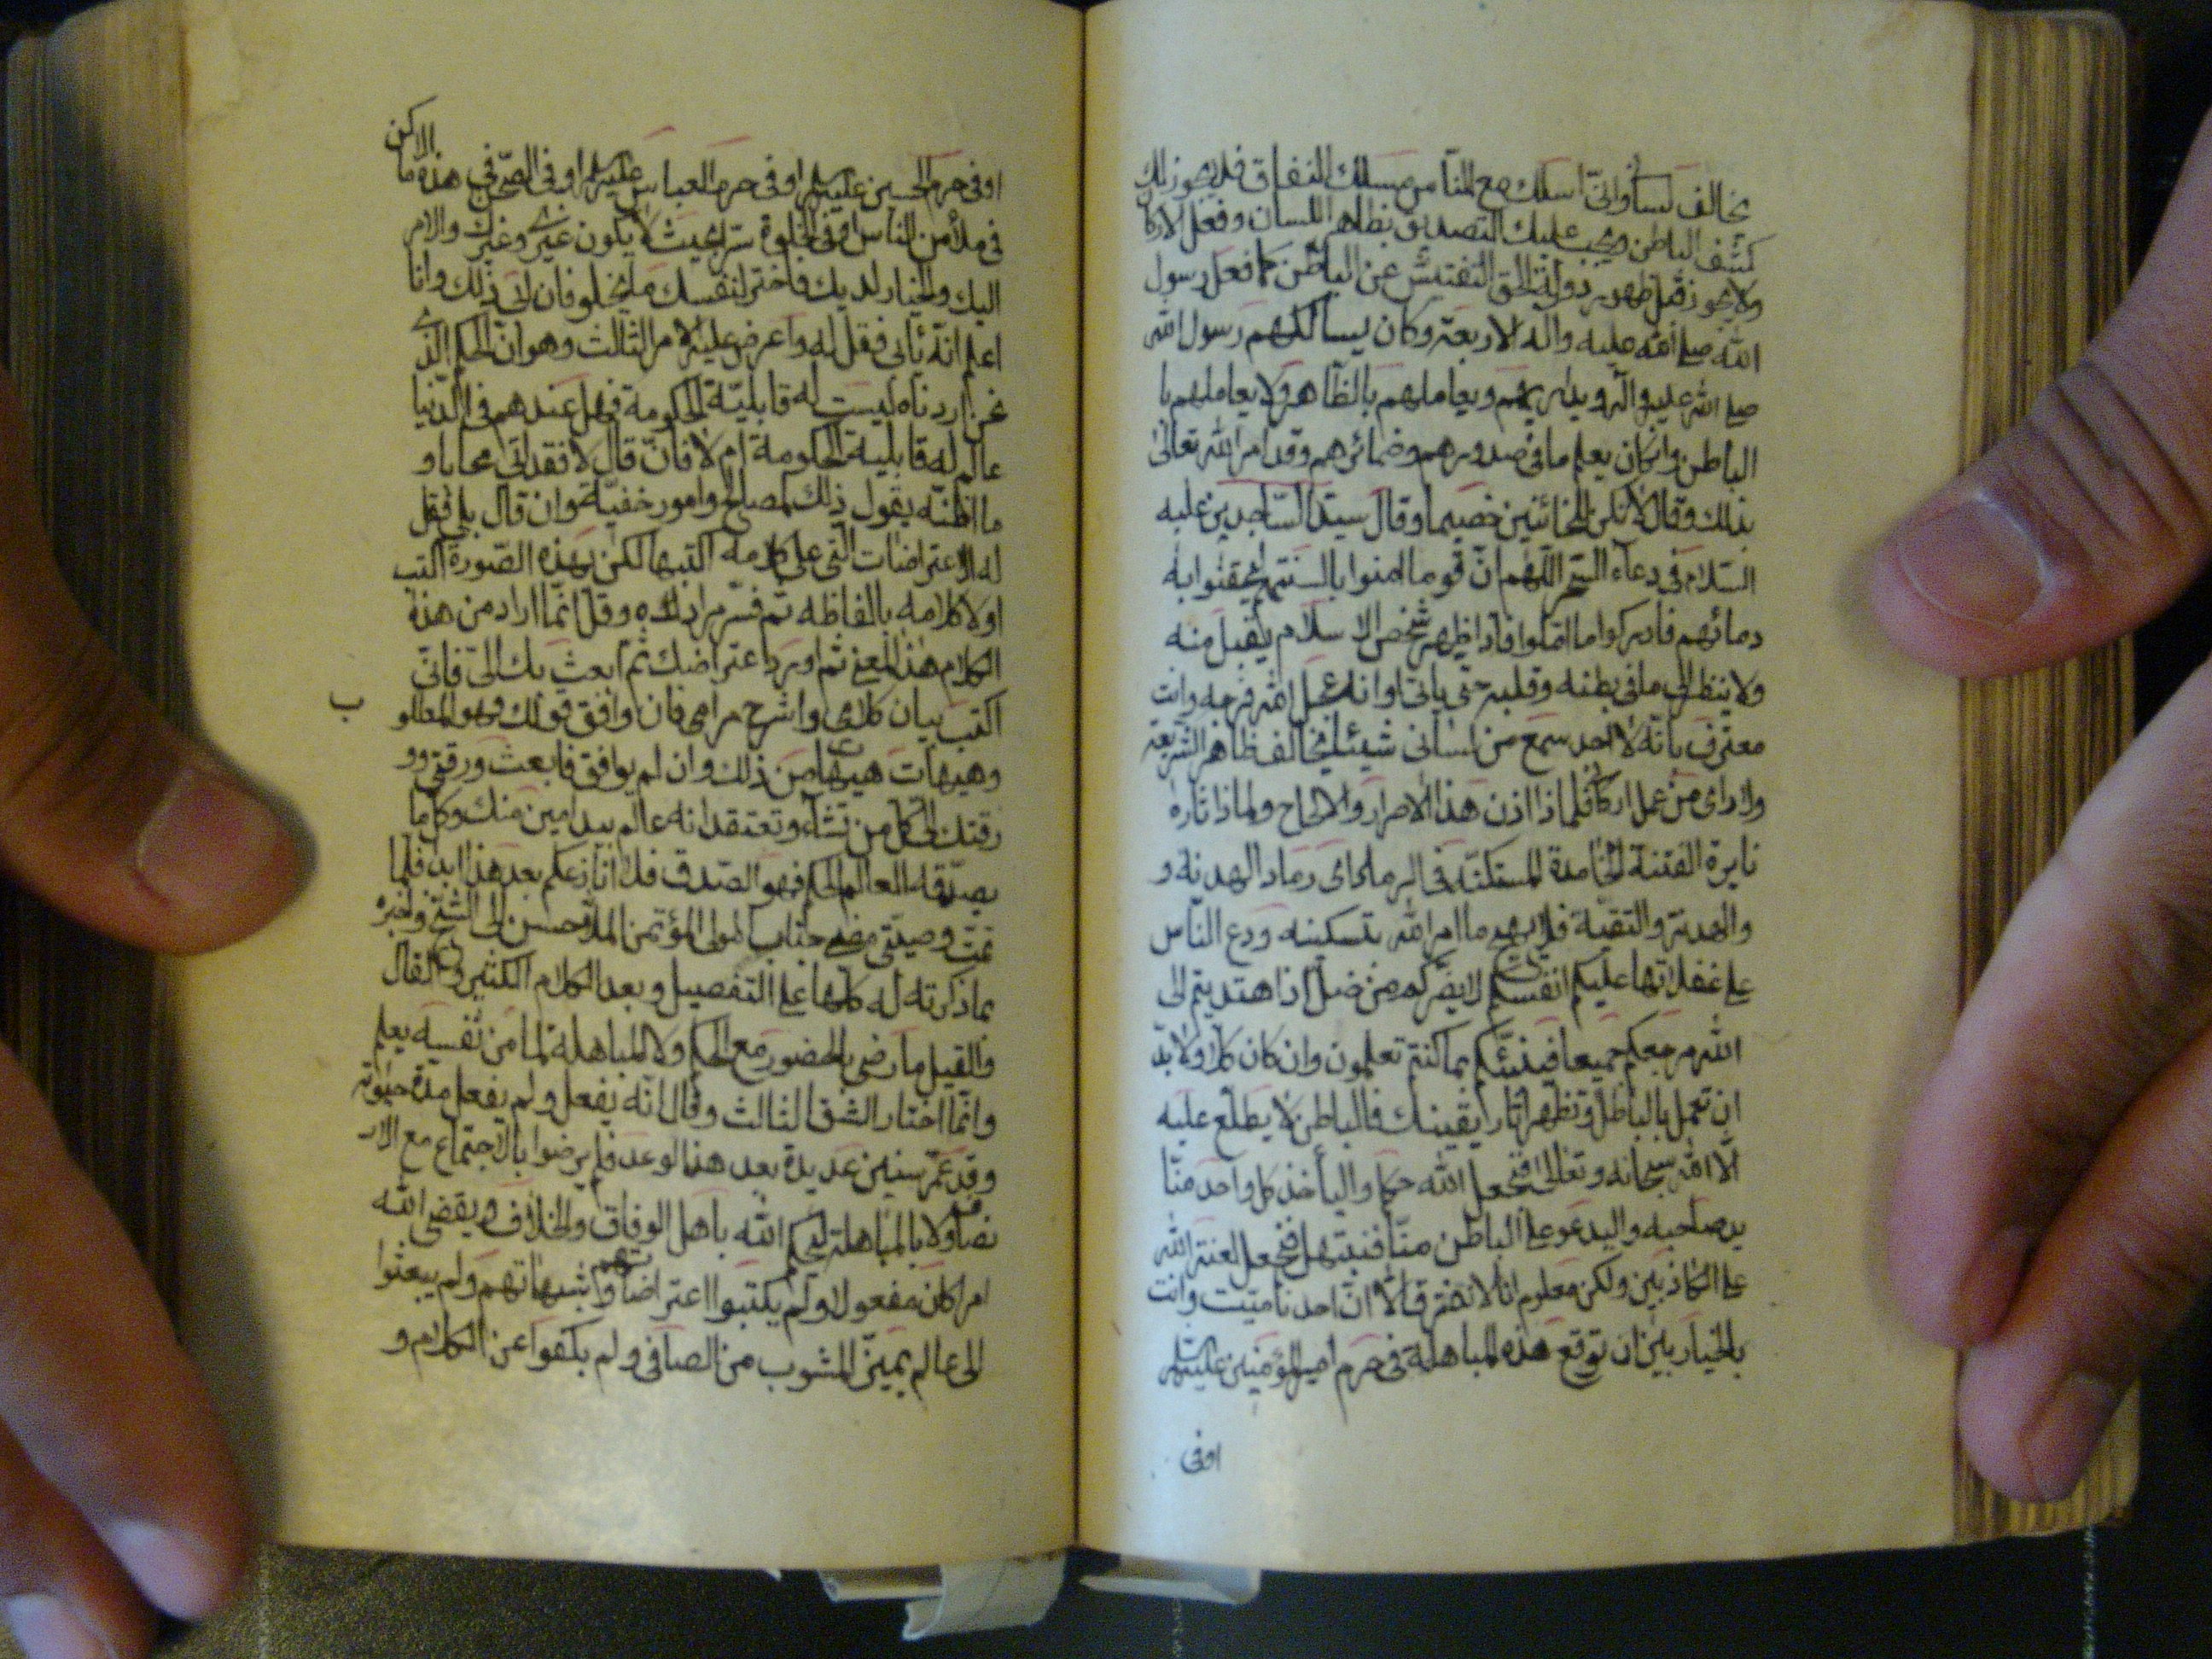 يخالف لساني واني اسلك مع الناس مسلك النفاق فلا يجوز لك
كشف الباطن ويجب عليك التصديق بظاهر اللسان وفعل الاركا
ولا يجوز قبل ظهور دولة الحق التفتيش عن الباطن كما فعل رسول
الله صلى الله عليه واله الاربعة وكان يسالكهم رسول الله
صلى الله عليه واله ويداريهم ويعاملهم بالظاهر ولا يعاملهم با
الباطن وانكان يعلم ما في صدورهم وضمائرهم وقد امر الله تعالى
بذلك وقال لا تكن للخائنين خصيما وقال سيد الساجدين عليه
السلام في دعاء السحر اللهم ان قوما امنوا بالسنتهم ليحقنوا به
دمائهم فادركوا ما املوا فاذا ظهر شخص الاسلام يقبل منه
ولا ينظر الى ما في بطنه وقلبه حتى ياتي اوانه عجل الله فرجه وانت
معترف بانه لا احد سمع من لساني شيئا يخالف ظاهر الشريعة
ولا راى من عمل اركاني فلماذا اذن هذا الاصرار والالحاح ولماذا تاره
نايرة الفتنة الخامدة المستكنة في الرماد اى رماد الهدنة و
والهدنة والتقية فلا يهيج ما امر الله بتسكينه ودع الناس
على غفلاتها عليكم انفسكم لا يضركم من ضل اذا اهتديتم الى
الله مرجعكم جميعا فينبئكم بما كنتم تعلمون وان كان كلا ولا بد
ان تعمل بالباطن وتظهر اثار يقينك فالباطن لا يطلع عليه
الا الله سبحانه وتعالى فنجعل الله حكما وليأخذ كل واحد منا
يد صاحبه وليدعو على الباطن منا فنبتهل فنجعل لعنة الله
على الكاذبين ولكن معلوم انا لا نفترق الا ان احدنا ميت وانت
بالخيار بين ان توقع هذه المباهلة في حرم امير المؤمنين عليه السلام
اوفى
او في حرم الحسين عليه السلام او في حرم العباس عليه السلام او في الصحن في هذه الاماكن
في ملأ من الناس او في الخلوة سرا بحيث لا يكون غيرى وغيرك والامر
اليك والخيار لديك فاختر لنفسك ما يحلو فان لك ذلك وانا
اعلم انه يأبى فقل له واعرض عليه الامر الثالث وهو ان الحكم الذى
نحن اردناه ليست له قابلية الحكومة فهل عندهم في الدنيا
عالم له قابلية الحكومة ام لا فان قال لا فقد اتى عجابا و
ما اظنه يقول ذلك لمصالح وامور خفية وان قال بلى فقل
له الاعتراضات التي على كلامه اكتبها لكن بهذه الصورة اكتب
اولا كلامه بالفاظه ثم فسر مرادك وقل انما اراد من هذه
الكلام هذا المعنى ثم اورد اعتراضك ثم ابعث بك الى فاني
اكتب بيان كلامى واشرح مرامى فان وافق قولك فهو المطلو
ب
وهيهات هيهات من ذلك وان لم يوافق فابعث ورقتي وو
رقتك الى كل من تشاء وتعتقد انه عالم بيد امين منك وكل ما
يصدقه العالم الحكم فهو الصدق فلا انازعكم بعد هذا ابدا فلما
تمت وصيتي مضى جناب المولى المؤتمن الملا حسن الى الشيخ واخبره
بما ذكرته له كلها على التفصيل وبعد الكلام الكثير والقال
والقيل ما رضى بالحضور مع الحكم ولا المباهلة لما من نفسه يعلم
وانما اختار الشق الثالث وقال انه يفعل ولم يفعل مدة حيوته
وقد عمر سنين عديدة بعد هذا الوعد فلم يرضوا بالاجتماع مع الار
تضاء ولا بالمباهلة ليحكم الله باهل الوفاق والخلاف ويقضى الله
امرا كان مفعولا ولم يكتبوا اعتراضاتهم وشبهاتهم ولم يبعثوا
الى عالم يميز المشوب من الصافي ولم يكفوا عن الكلام و